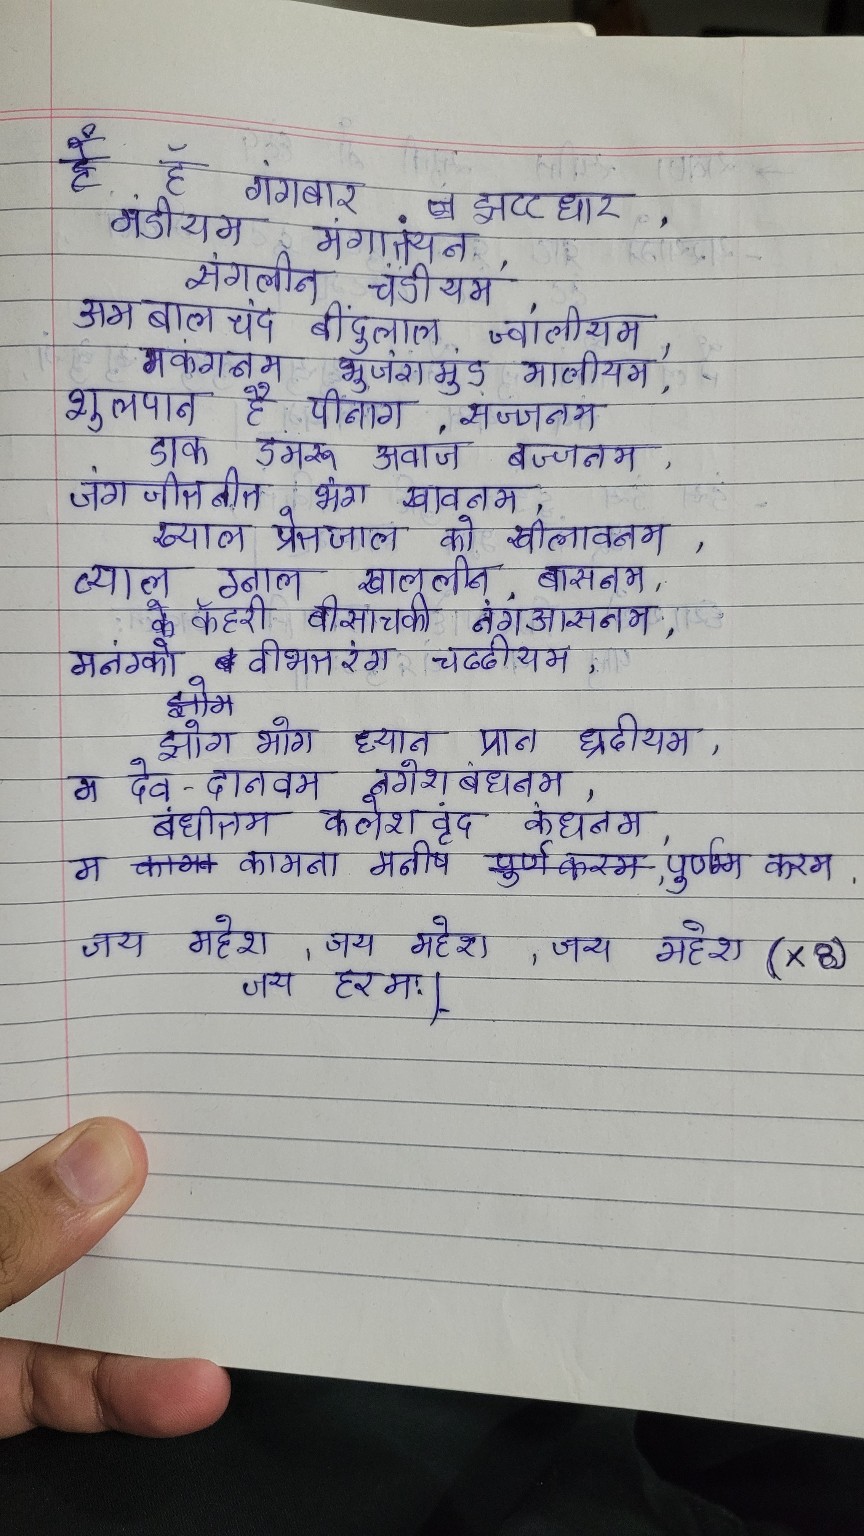 हॅ गंगबार झटट धार,
मंडीयम मंगानंयन,
संगलीन चंडीयम,
अम बाल चंद बींदुलाल ज्वालीयम,
मकंगनम भुजंगमुंड मालीयम,
शुलपान है पीनाग, सज्जनम
डाक डमरू अवाज बज्जनम,
जंग जीत नीत भंग खावनम,
ख्याल प्रेतजाल को खीलावनम,
व्याल ग्नाल खाललीन, बासनम,
के कॅहरी बीसाचकी नंगआसनम,
मनंग्को वीभतरंग चढढीयम,
झोग भोग ध्यान प्रान ध्रदीयम,
म देव-दानवम नगेश बंधनम,
बंधीतम कलेश वृंद कंधनम,
म कामना मनीष पुर्णम करम,
जय महेश, जय महेश, जय महेश (x8)
जय हरमः।